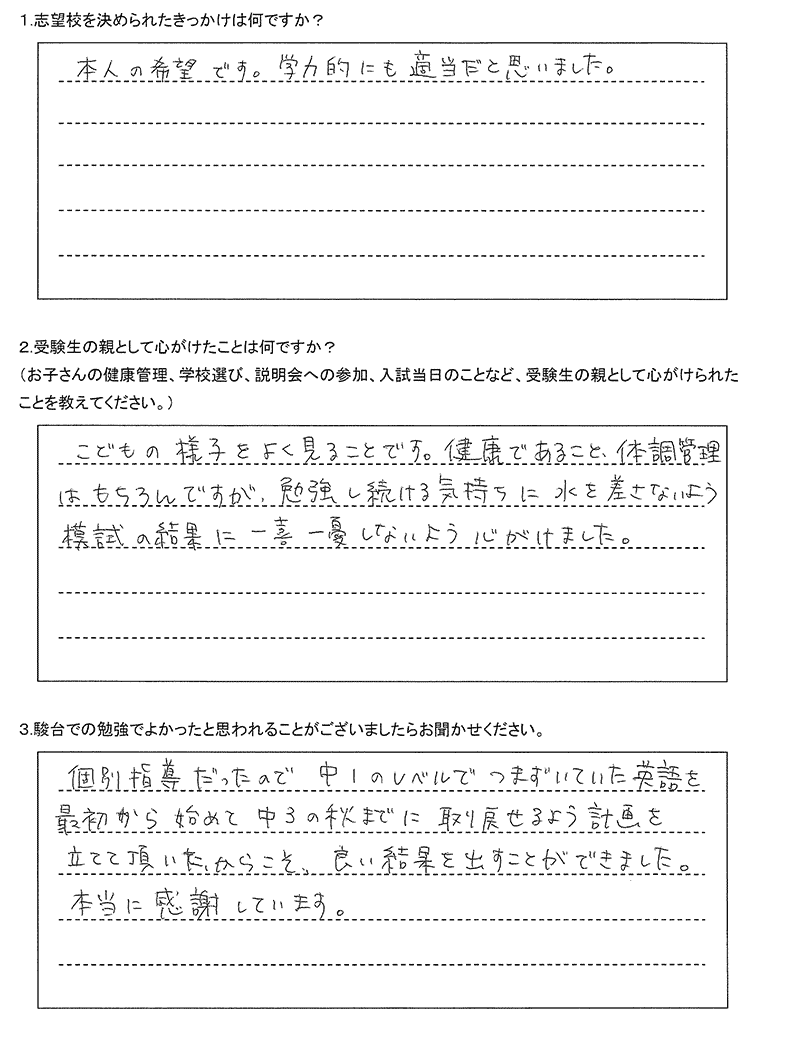 1.志望校を決められたきっかけは何ですか？
本人の希望です。学力的にも適当だと思いました。
2.受験生の親として心がけたことは何ですか？
（お子さんの健康管理、学校選び、説明会への参加、入試当日のことなど、受験生の親として心がけられた
ことを教えてください。）
こどもの様子をよく見ることです。健康であること、体調管理
はもちろんですが、勉強し続ける気持ちに水を差さないよう
模試の結果に一喜一憂しないよう心がけました。
3.駿台での勉強でよかったと思われることがございましたらお聞かせください。
個別指導だったので中1のレベルでつまずいていた英語を
最初から始めて中3の秋までに取り戻せるよう計画を
立てて頂いたからこそ、良い結果を出すことができました。
本当に感謝しています。